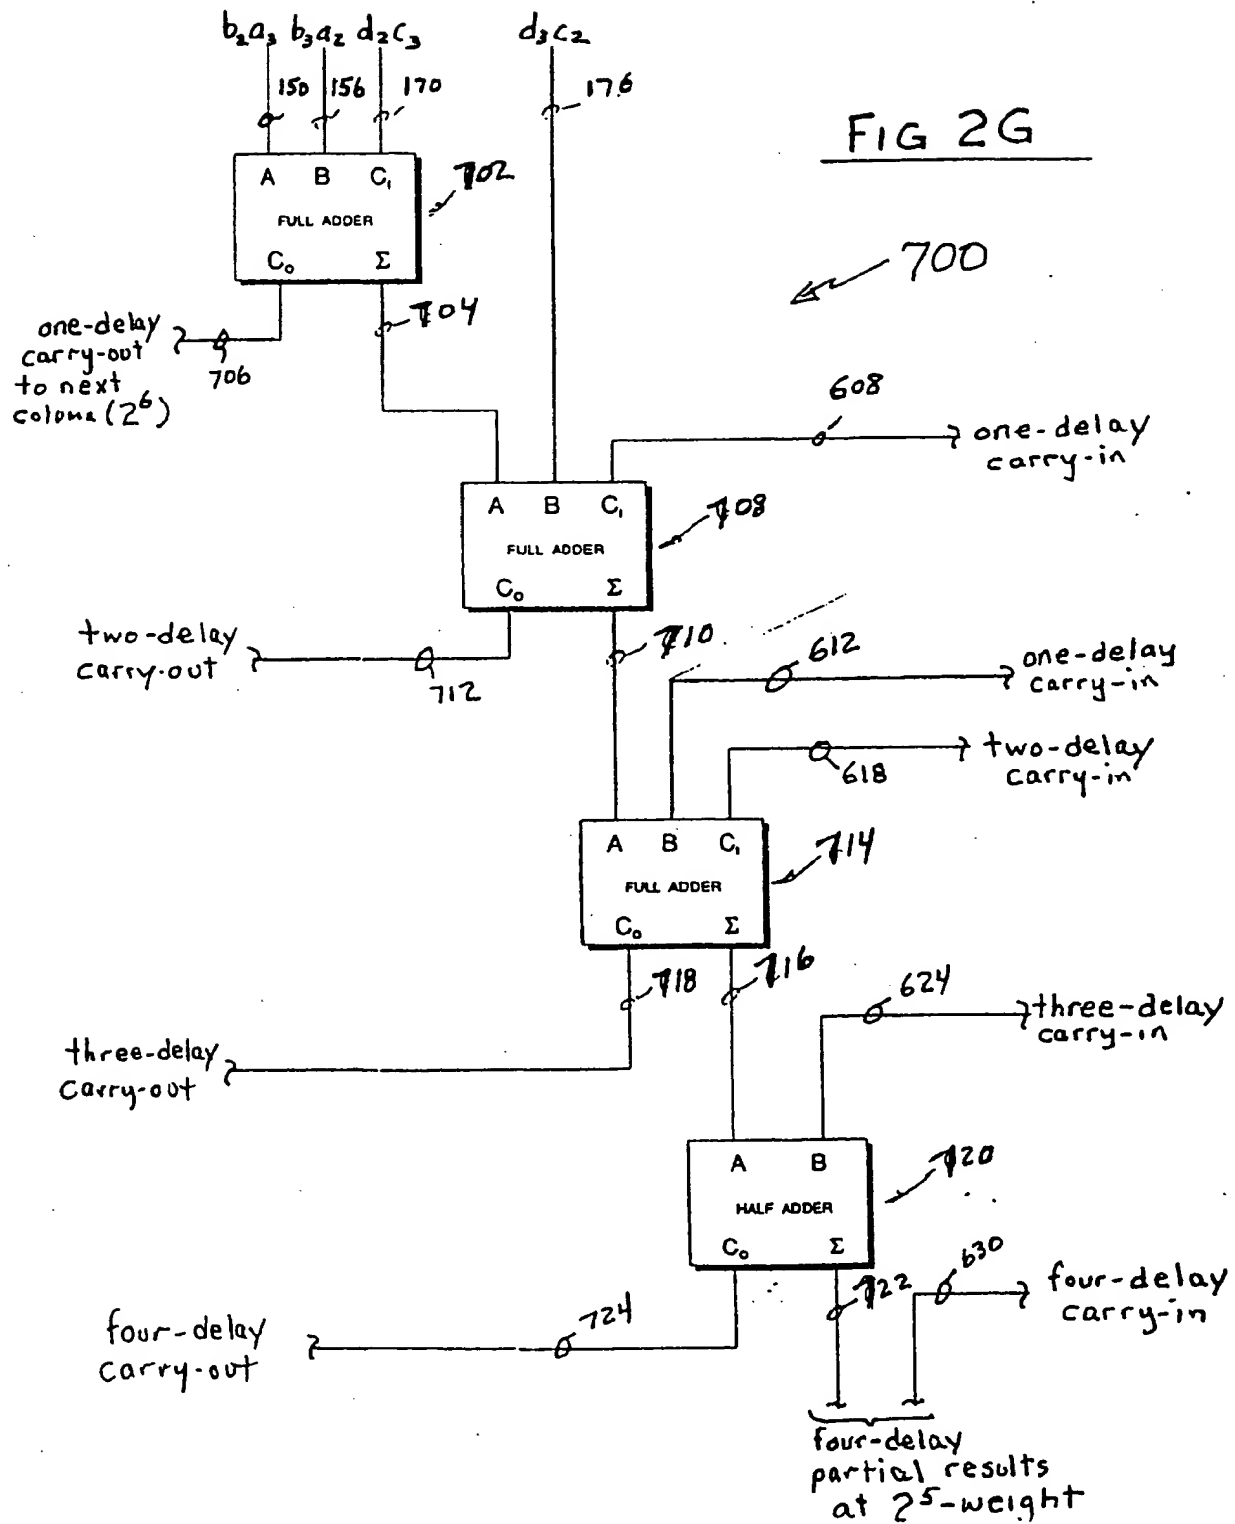 b₂a₃ b₃a₂ d₂c₃ d₃c₂
150 156 170 176
FIG 2G
A B C₁
702
FULL ADDER
C₀ Σ
700
704
one-delay
carry-out
to next
colomn (2⁶)
706
608
one-delay
carry-in
A B C₁
708
FULL ADDER
C₀ Σ
two-delay
carry-out
712
710
612
one-delay
carry-in
618
two-delay
carry-in
A B C₁
714
FULL ADDER
C₀ Σ
718
716
624
three-delay
carry-in
three-delay
carry-out
A B
720
HALF ADDER
C₀ Σ
722
630
four-delay
carry-in
four-delay
carry-out
724
four-delay
partial results
at 2⁵-weight